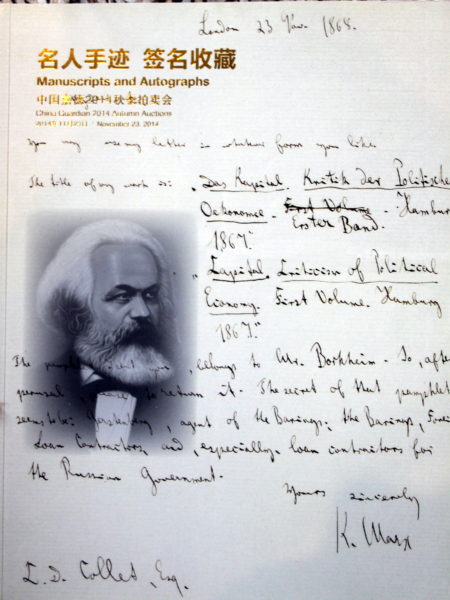 London 23 Nov. 1868.
名人手迹 签名收藏
Manuscripts and Autographs
中国嘉德2014秋季拍卖会
China Guardian 2014 Autumn Auctions
2014年11月23日 November 23, 2014
You may use my letter in whatever form you like.
The title of my work is: „Das Kapital. Kritik der Politischen
Oekonomie. First Volume. Hamburg
Erster Band.
1867."
„Capital. Criticism of Political
Economy. First Volume. Hamburg
1867."
The pamphlet sent you, belongs to Mr. Borkheim. So, after
perusal, to return it. The secret of that pamphlet
seems to be: agent of the Barings; the Barings,
Loan Contractors, and, especially loan contractors for
the Russian Government.
Yours sincerely
K. Marx
C. D. Collet, Esq.